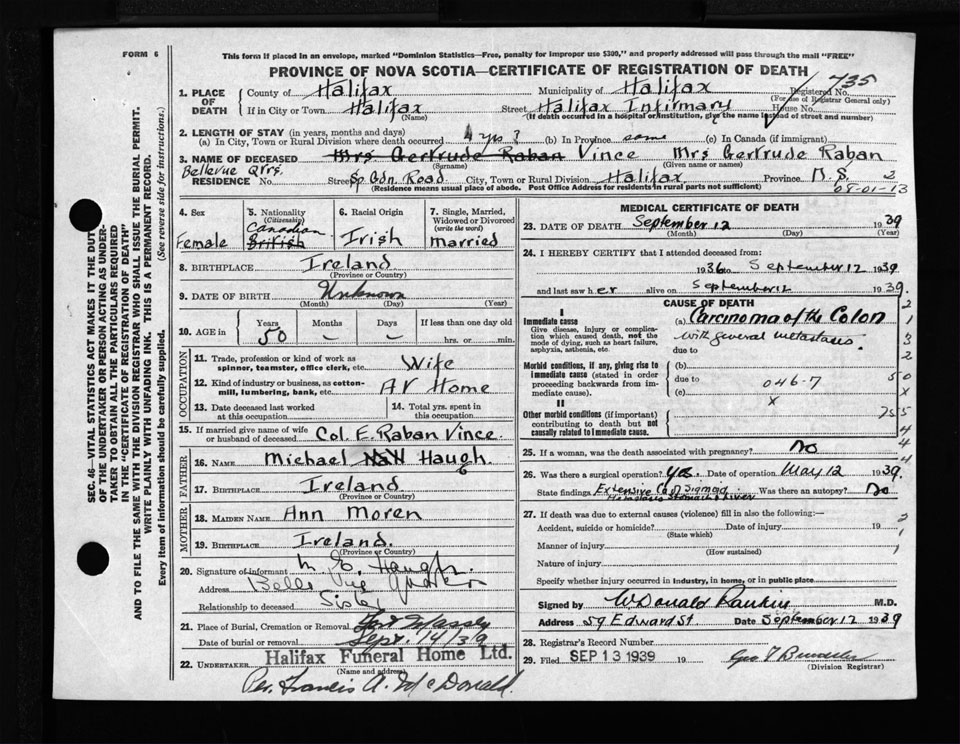 FORM 6
This form if placed in an envelope, marked "Dominion Statistics—Free, penalty for improper use $300," and properly addressed will pass through the mail "FREE"
PROVINCE OF NOVA SCOTIA—CERTIFICATE OF REGISTRATION OF DEATH
735
1. PLACE OF DEATH
County of Halifax Municipality of Halifax Registered No.
(For use of Registrar General only)
If in City or Town Halifax Street Halifax Infirmary House No.
(Name) (If death occurred in a hospital or institution, give the name instead of street and number)
2. LENGTH OF STAY (in years, months and days)
(a) In City, Town or Rural Division where death occurred 4 yrs 3 (b) In Province same (c) In Canada (if immigrant)
3. NAME OF DECEASED Mrs Gertrude Raban Vince Mrs Gertrude Raban
(Surname) (Given name or names)
Bellevue Qrs.
RESIDENCE No. Street Sp Gdn. Road City, Town or Rural Division Halifax Province N.S. 2
(Residence means usual place of abode. Post Office Address for residents in rural parts not sufficient)
08-01-13
4. Sex
Female
5. Nationality
(Citizenship)
Canadian
British
6. Racial Origin
Irish
7. Single, Married, Widowed or Divorced
(write the word)
Married
8. BIRTHPLACE Ireland
(Province or Country)
9. DATE OF BIRTH Unknown
(Month) (Day) (Year)
10. AGE in
Years Months Days If less than one day old
50 – – hrs. or min.
OCCUPATION
11. Trade, profession or kind of work as spinner, teamster, office clerk, etc. Wife
12. Kind of industry or business, as cotton-mill, lumbering, bank, etc. At Home
13. Date deceased last worked at this occupation
14. Total yrs. spent in this occupation
15. If married give name of wife or husband of deceased Col. E. Raban Vince.
FATHER
16. NAME Michael Haugh.
17. BIRTHPLACE Ireland
(Province or Country)
MOTHER
18. MAIDEN NAME Ann Moren
19. BIRTHPLACE Ireland.
(Province or Country)
20. Signature of informant M. G. Haugh.
Address Belle Vue Quarters
Relationship to deceased Sister
21. Place of Burial, Cremation or Removal Fort Massey
Date of burial or removal Sept. 14/39
22. UNDERTAKER Halifax Funeral Home Ltd.
Per. Francis A. McDonald.
MEDICAL CERTIFICATE OF DEATH
23. DATE OF DEATH September 12 1939
(Month) (Day) (Year)
24. I HEREBY CERTIFY that I attended deceased from:
1936 to September 12 1939
and last saw her alive on September 12 1939.
CAUSE OF DEATH
I
Immediate cause
Give disease, injury or complication which caused death, not the mode of dying, such as heart failure, asphyxia, asthenia, etc.
(a) Carcinoma of the Colon
with several metastases.
due to
Morbid conditions, if any, giving rise to immediate cause (stated in order proceeding backwards from immediate cause).
(b)
due to 046-7
(c) x
II
Other morbid conditions (if important) contributing to death but not causally related to immediate cause.
25. If a woman, was the death associated with pregnancy? No
26. Was there a surgical operation? Yes. Date of operation May 12 1939.
State findings Extensive Ca of Sigmoid Metastases Stomach & Liver Was there an autopsy? No
27. If death was due to external causes (violence) fill in also the following:—
Accident, suicide or homicide? Date of injury 19
(State which)
Manner of injury
(How sustained)
Nature of injury
Specify whether injury occurred in industry, in home, or in public place
Signed by W Donald Rankin M.D.
Address 59 Edward St Date September 12 1939
28. Registrar's Record Number
29. Filed SEP 13 1939 19
(Division Registrar)
SEC. 46—VITAL STATISTICS ACT MAKES IT THE DUTY
OF THE UNDERTAKER OR PERSON ACTING AS UNDERTAKER TO OBTAIN ALL THE PARTICULARS REQUIRED
IN THE "CERTIFICATE OF REGISTRATION OF DEATH"
AND TO FILE THE SAME WITH THE DIVISION REGISTRAR WHO SHALL ISSUE THE BURIAL PERMIT.
WRITE PLAINLY WITH UNFADING INK. THIS IS A PERMANENT RECORD.
Every item of information should be carefully supplied. (See reverse side for instructions.)